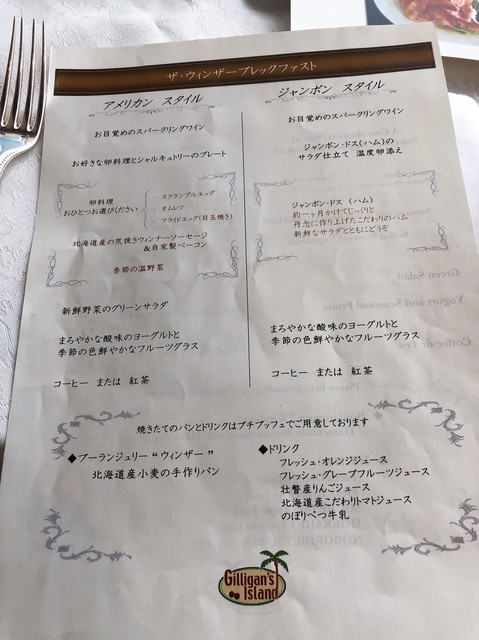 ザ・ウィンザーブレックファスト
アメリカン スタイル
お目覚めのスパークリングワイン
お好きな卵料理とシャルキュトリーのプレート
卵料理
おひとつお選びください
・スクランブルエッグ
・オムレツ
・フライドエッグ(目玉焼き)
北海道産の荒挽きウィンナーソーセージ
&自家製ベーコン
季節の温野菜
新鮮野菜のグリーンサラダ
まろやかな酸味のヨーグルトと
季節の色鮮やかなフルーツグラス
コーヒー または 紅茶
ジャンボン スタイル
お目覚めのスパークリングワイン
ジャンボン・ドス(ハム)の
サラダ仕立て 温度卵添え
ジャンボン・ドス (ハム)
約一ヶ月かけてじっくりと
丹念に作り上げたこだわりのハム
新鮮なサラダとともにどうぞ
まろやかな酸味のヨーグルトと
季節の色鮮やかなフルーツグラス
コーヒー または 紅茶
焼きたてのパンとドリンクはプチブッフェでご用意しております
◆ブーランジュリー“ウィンザー”
北海道産小麦の手作りパン
◆ドリンク
フレッシュ・オレンジジュース
フレッシュ・グレープフルーツジュース
壮瞥産りんごジュース
北海道産こだわりトマトジュース
のぼりべつ牛乳
Green Salad
Yogurt and Seasonal Fruits
Coffee or Tea
Gilligan's
Island